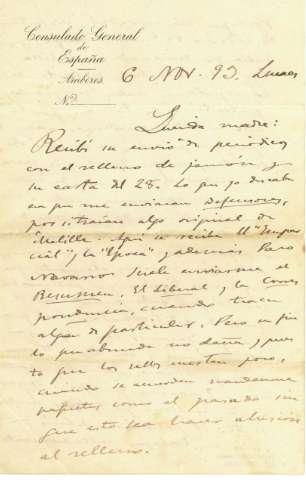 Consulado General
de
España
Amberes
Nº
6 Nov. 93. Lunes
Querida madre:
Recibí su envío de periódicos
con el relleno de jamón y
su carta del 28. Lo que yo
es que me enviaran defensores,
por si traían algo original de
Melilla. Aquí se recibe El "Impar
cial" y la "Época" y además Paco
Navarro suele enviarme el
Resumen, El Liberal y la Corres
pondencia, cuando traen
algo de particular. Pero en fin
lo que abunda no daña, y pues
to que los sellos cuestan poco,
cuando se acuerden mandenme
paquetes como el pasado sin
que esto sea hacer alusión
al relleno.